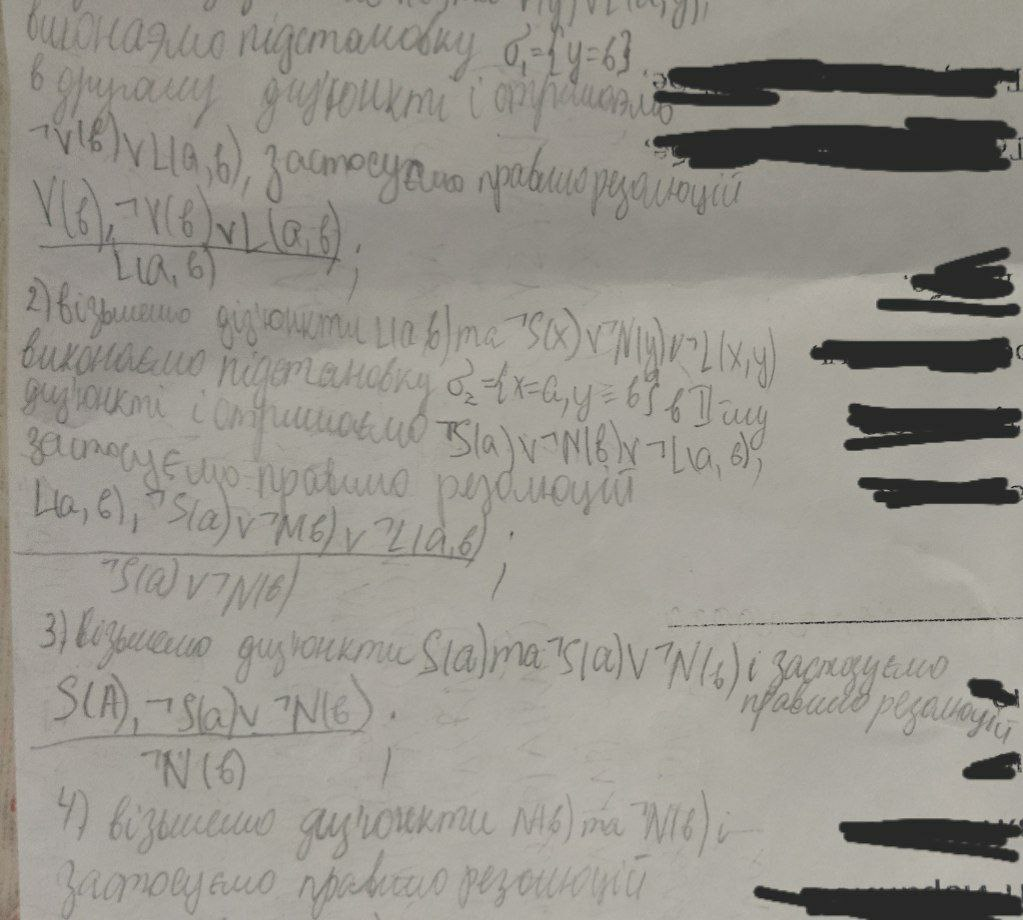 виконаємо підстановку σ₁={y=б}
в другому диз'юнкті і отримаємо
¬V(б)∨L(a,б), застосуємо правило резолюцій
V(б), ¬V(б)∨L(a,б) ;
L(a,б)
2) візьмемо диз'юнкти L(a б) та ¬S(x)∨¬N(y)∨¬L(x,y)
виконаємо підстановку σ₂={x=a, y=б} в II-му
диз'юнкті і отримаємо ¬S(a)∨¬N(б)∨¬L(a,б),
застосуємо правило резолюцій
L(a,б), ¬S(a)∨¬N(б)∨¬L(a,б) ;
¬S(a)∨¬N(б)
3) візьмемо диз'юнкти S(a) та ¬S(a)∨¬N(б) і застосуємо
правило резолюцій
S(A), ¬S(a)∨¬N(б) ;
¬N(б)
4) візьмемо диз'юнкти N(б) та ¬N(б) і
застосуємо правило резолюцій